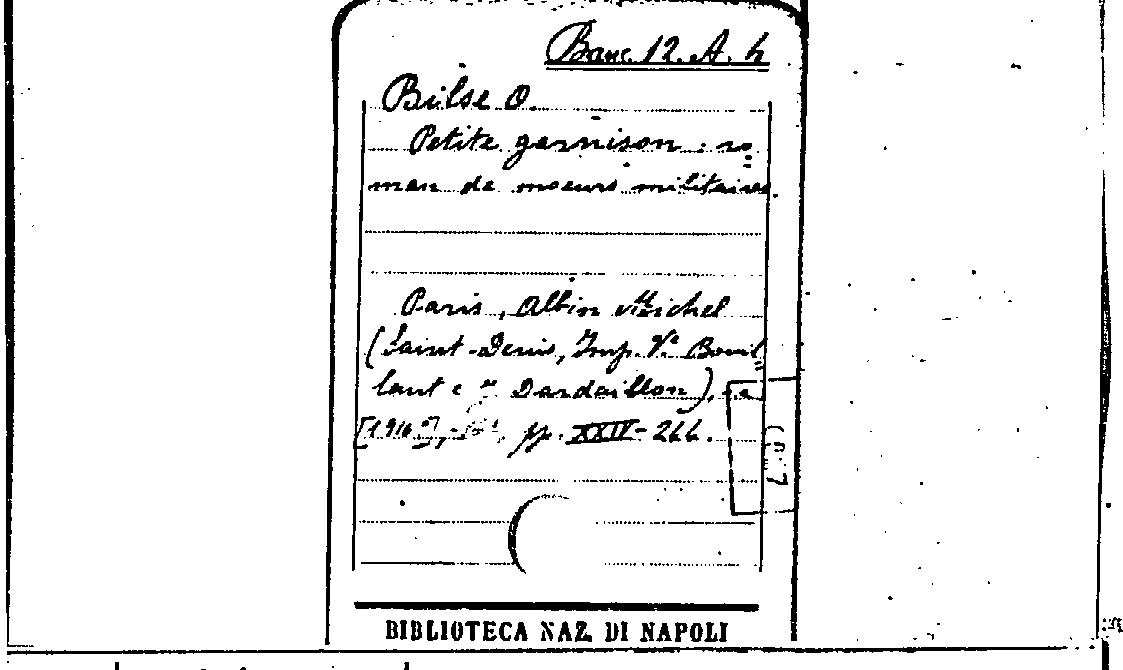 Banc. 12. A. h
Bilse O.
Petite garnison : ro=
man de moeurs militaires.
Paris, Albin Michel
(Saint-Denis, Imp. Vᵉ Bouil=
lant e Dardaillon),
pp. XXIV-266.
BIBLIOTECA NAZ. DI NAPOLI